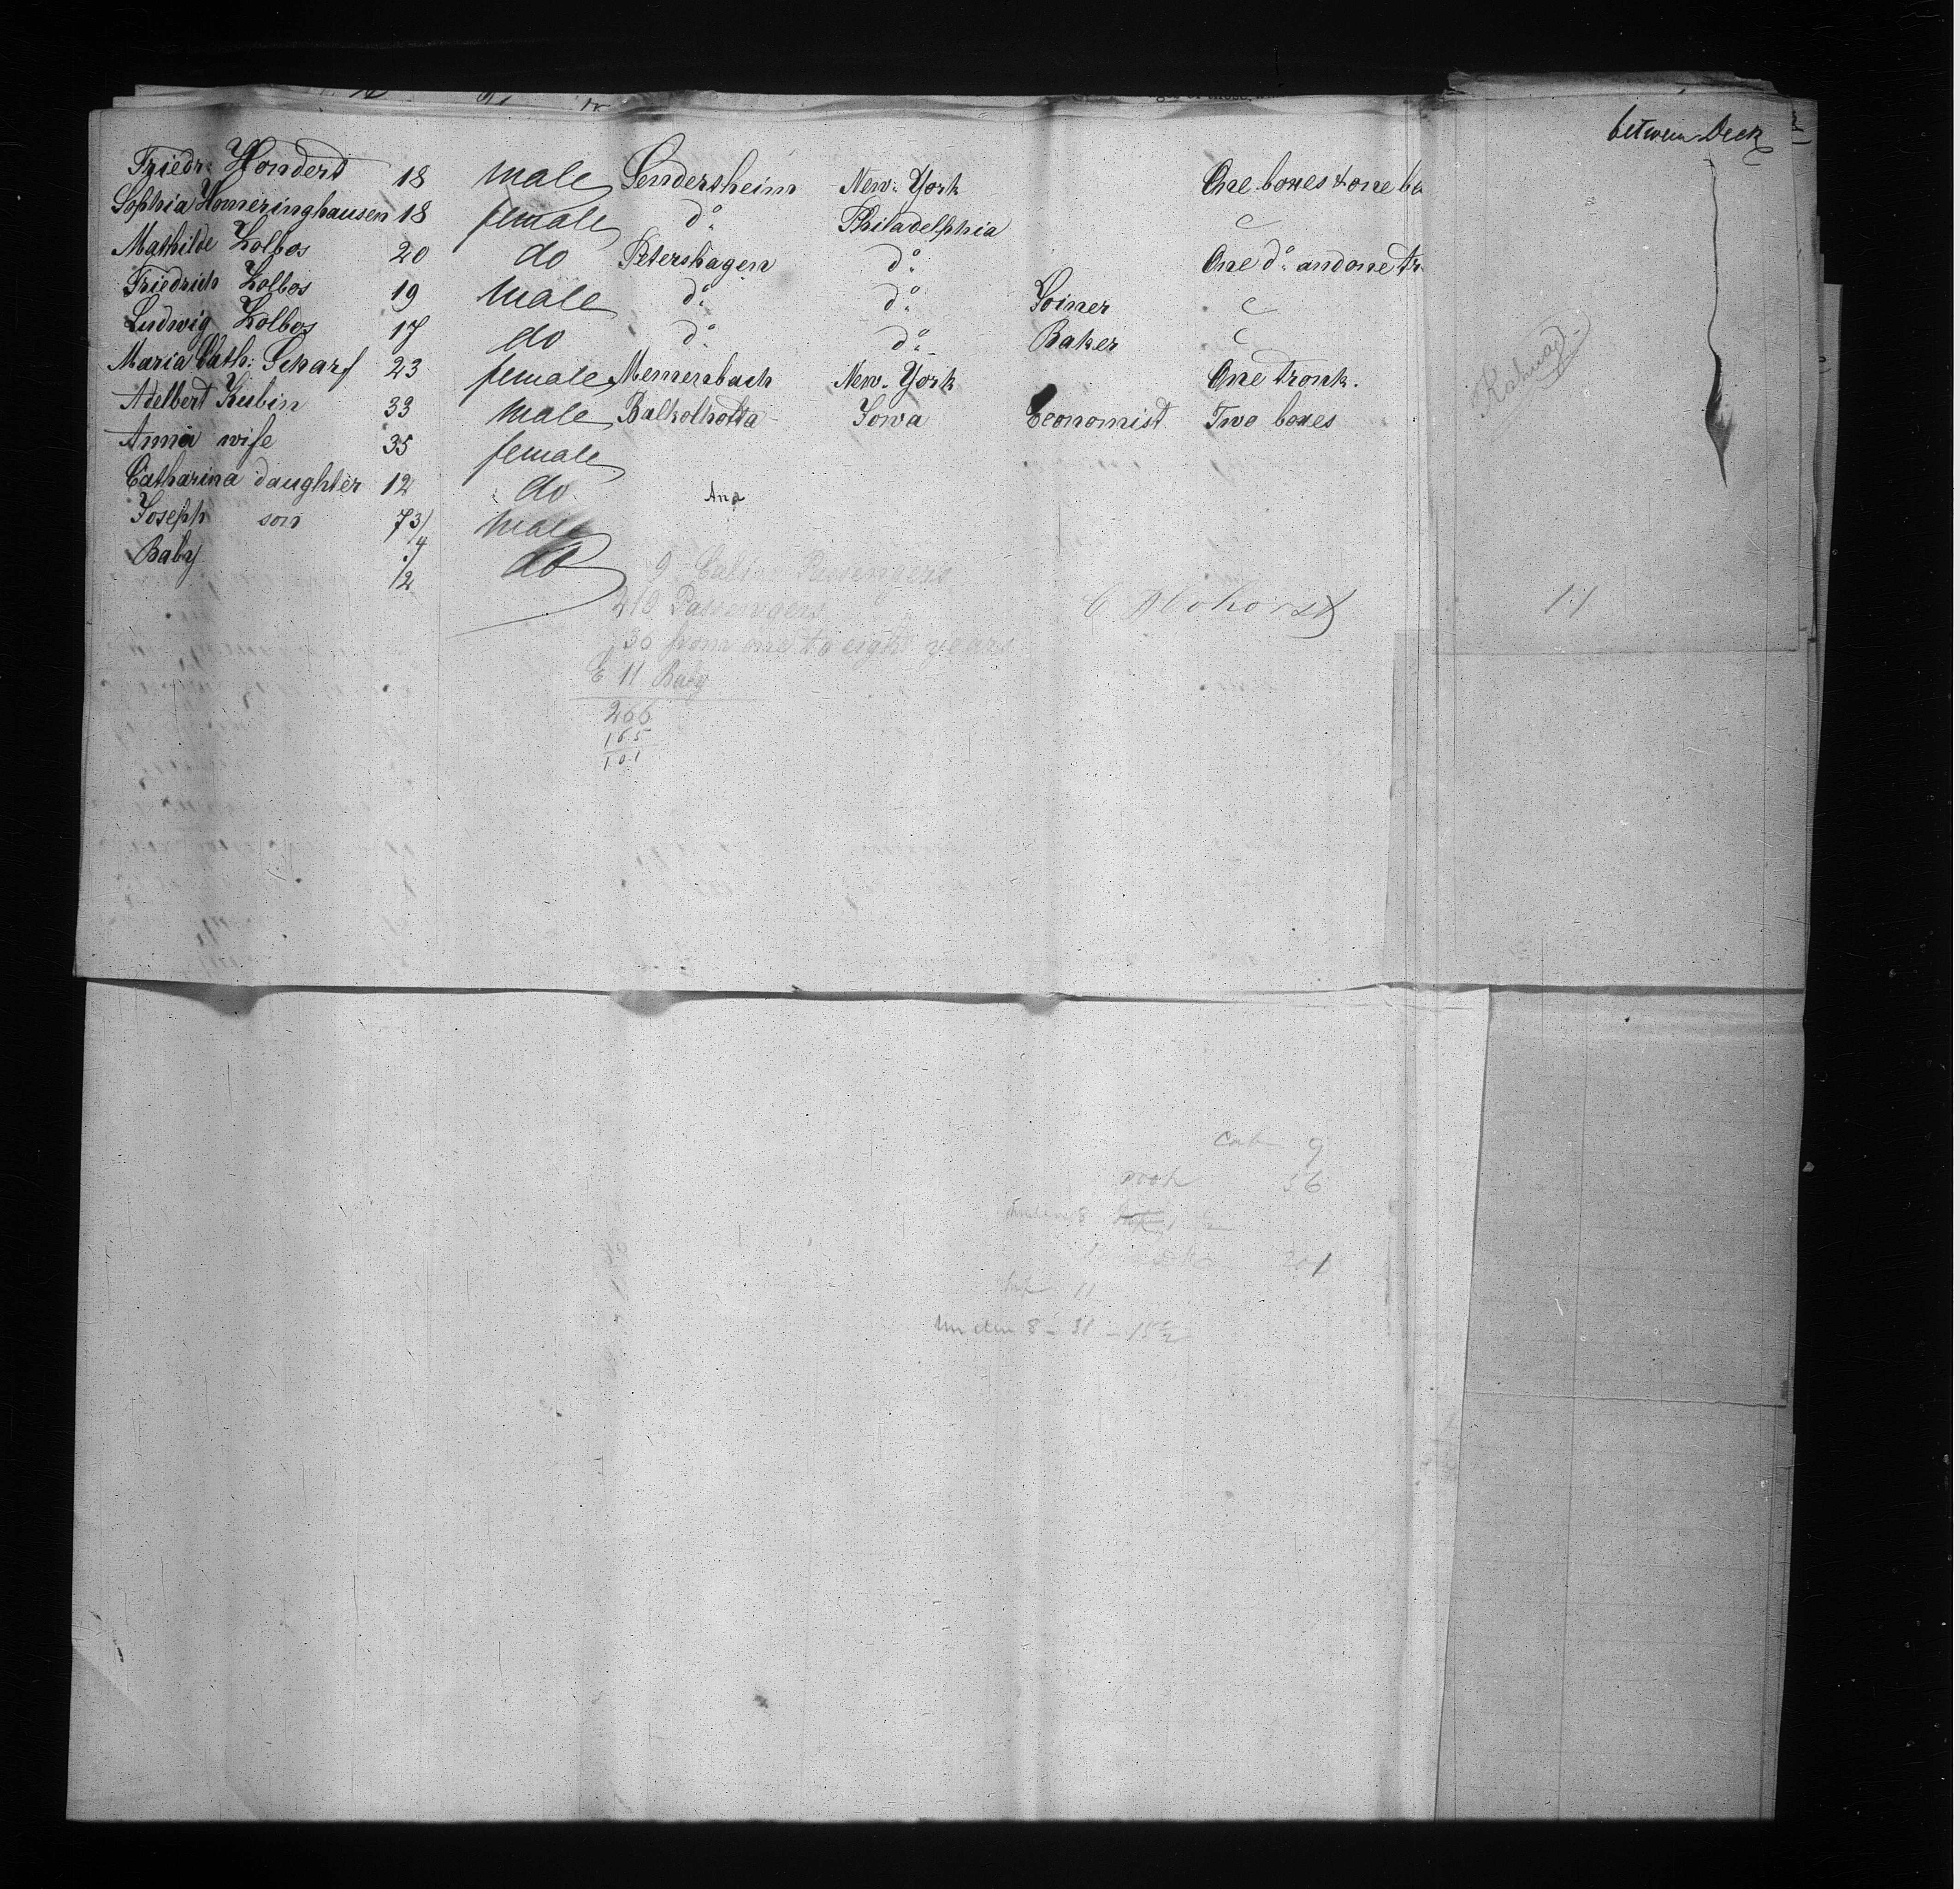 between Deck
Friedr: Hondert 18 male Sendersheim New-York One boxes & one ba
Sophia Homeringhausen 18 female do Philadelphia
Mathilde Kolbos 20 do Petershagen do One do and one tr
Friedrich Kolbos 19 male do do Joiner
Ludwig Kolbos 17 do do do Baker
Maria Cath: Scharf 23 female Memersbach New-York One Tronk.
Adelbert Kubin 33 male Balkolhotta Iowa Economist Two boxes
Anna wife 35 female
Catharina daughter 12 do
Joseph son 7 3/4 male
Baby 1/2 do
9 Cabin Passengers
210 Passengers
30 from one to eight years
& 11 Baby
266
165
101
Cab 9
poop 56
under 8
201
Inf 11
Under 8 - 31 - 15 1/2